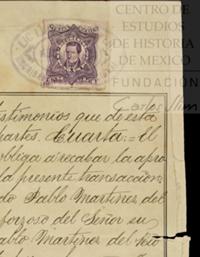 CENTRO DE
ESTUDIOS
DE HISTORIA
DE MEXICO
FUNDACIÓN
Carlos Slim
testimonios que de esta
partes. Cuarta = El
obliga á recabar la apro
la presente transaccion
do Pablo Martinez del
forzoso del Señor su
ablo Martinez del Rio